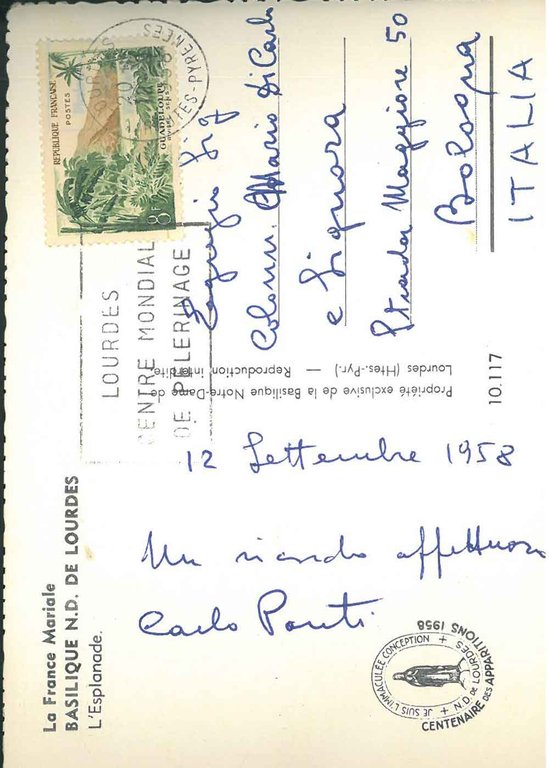 La France Mariale
BASILIQUE N.D. DE LOURDES
L'Esplanade.
12 Settembre 1958
Un ricordo affettuoso
Carlo Ponti
JE SUIS L'IMMACULÉE CONCEPTION + N.D. DE LOURDES +
CENTENAIRE des APPARITIONS 1958
Propriété exclusive de la Basilique Notre-Dame de
Lourdes (Htes.-Pyr.) — Reproduction interdite
10.117
LOURDES
CENTRE MONDIAL
DE PELERINAGE
REPUBLIQUE FRANÇAISE
POSTES
GUADELOUPE
8F
LOURDES
20
HTES-PYRENEES
Egregio Sig
Colonn. Mario Di Carlo
e Signora
Strada Maggiore 50
Bologna
ITALIA